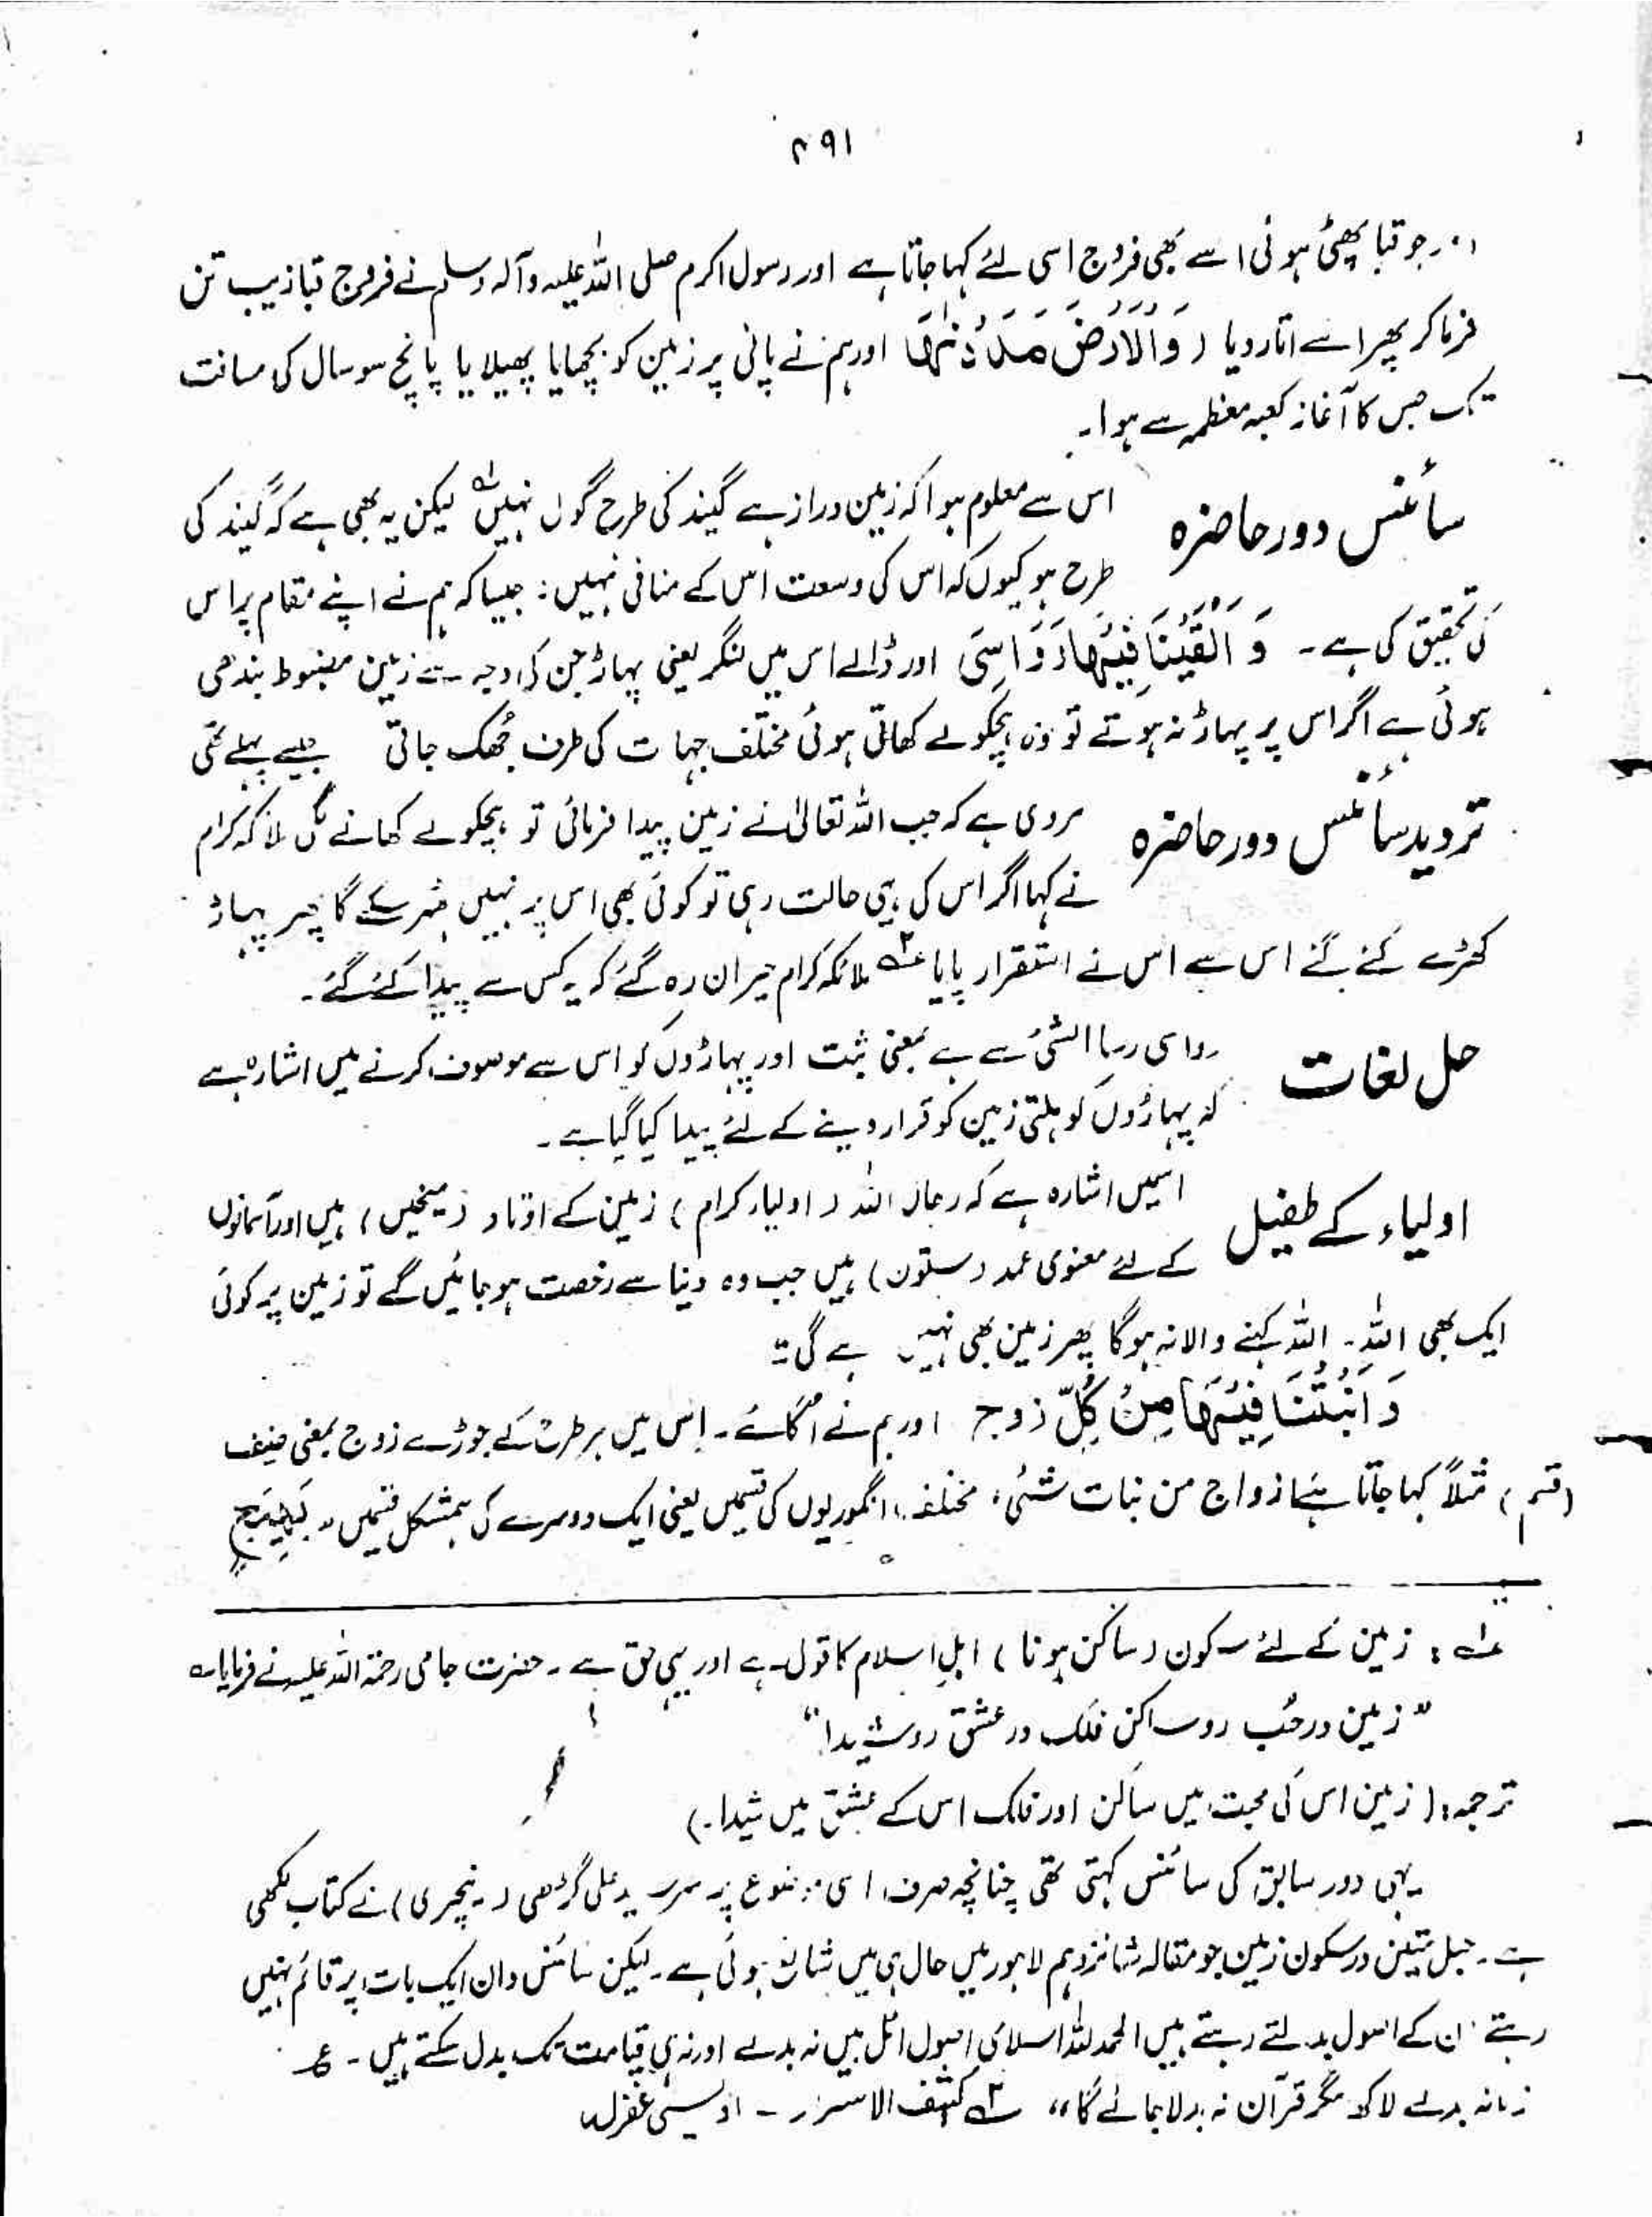 ۴۹۱
اور جو قبا پھٹی ہوئی اسے بھی فروج اسی لئے کہا جاتا ہے اور رسول اکرم صلی اللہ علیہ وآلہ وسلم نے فروج قبا زیب تن
فرما کر پھر اسے اتار دیا ( وَالْاَرْضَ مَدَدْنٰهَا اور ہم نے پانی پر زمین کو بچھایا پھیلایا پانچ سو سال کی مسافت
تک جس کا آغاز کعبہ معظمہ سے ہوا۔
سائنس دور حاضرہ
اس سے معلوم ہوا کہ زمین دراز ہے گیند کی طرح گول نہیں لیکن یہ بھی ہے کہ گیند کی
طرح ہو کیوں کہ اس کی وسعت اس کے منافی نہیں : جیسا کہ ہم نے اپنے مقام پر اس
کی تحقیق کی ہے۔ وَ اَلْقَيْنَا فِيْهَا رَوَاسِيَ اور ڈالے اس میں لنگر یعنی پہاڑ جن کی وجہ سے زمین مضبوط بندھی
ہوئی ہے اگر اس پر پہاڑ نہ ہوتے تو وہ ہچکولے کھاتی ہوئی مختلف جہات کی طرف جُھک جاتی جیسے پہلے تھی
تردید سائنس دور حاضرہ
مروی ہے کہ جب اللہ تعالیٰ نے زمین پیدا فرمائی تو ہچکولے کھانے لگی ملائکہ کرام
نے کہا اگر اس کی یہی حالت رہی تو کوئی بھی اس پر نہیں ٹھہر سکے گا پھر پہاڑ
کھڑے کئے گئے اس سے اس نے استقرار پایا ؎۲ ملائکہ کرام حیران رہ گئے کہ یہ کس سے پیدا کئے گئے۔
حل لغات
رواسی رسا الشئ سے ہے بمعنی ثبت اور پہاڑوں کو اس سے موصوف کرنے میں اشارہ ہے
کہ پہاڑوں کو ہلتی زمین کو قرار دینے کے لئے پیدا کیا گیا ہے۔
اولیاء کے طفیل
اسمیں اشارہ ہے کہ رجال اللہ ( اولیاء کرام ) زمین کے اوتاد ( میخیں ) ہیں اور آسمانوں
کے لئے معنوی عمد ( ستون ) ہیں جب وہ دنیا سے رخصت ہو جائیں گے تو زمین پر کوئی
ایک بھی اللہ۔ اللہ کہنے والا نہ ہو گا پھر زمین بھی نہیں ہے گی :
وَ اَنْبَتْنَا فِيْهَا مِنْ كُلِّ زوج اور ہم نے اُگائے۔ اس میں ہر طرح کے جوڑے زوج بمعنی صنف
(قسم ) مثلاً کہا جاتا ہے ازواج من نبات شئی، مختلف انگوریوں کی قسمیں یعنی ایک دوسرے کی ہمشکل قسمیں۔ بَهِيْجٍ
؎۱ : زمین کے لئے سکون ( ساکن ہونا ) اہل اسلام کا قول ہے اور یہی حق ہے۔ حضرت جامی رحمۃ اللہ علیہ نے فرمایا ؎
” زمین در حُب روساکن فلک در عشق روشیدا “
ترجمہ : ( زمین اس کی محبت میں ساکن اور فلک اس کے عشق میں شیدا۔)
یہی دور سابق کی سائنس کہتی تھی چنانچہ صرف اسی موضوع پر سرسید علی گڑھی ( نیچری ) نے کتاب لکھی
ہے۔ حبل متین در سکون زمین جو مقالہ شانزدہم لاہور میں حال ہی میں شائع ہوئی ہے۔ لیکن سائنس دان ایک بات پر قائم نہیں
رہتے ان کے اصول بدلتے رہتے ہیں الحمد للہ اسلامی اصول اٹل ہیں نہ بدلے اور نہ ہی قیامت تک بدل سکتے ہیں۔ ع
زمانہ بدلے لاکھ مگر قرآن نہ بدلا جائے گا “ ؎۲ کشف الاسرار ۔ اویسی غفرلہ